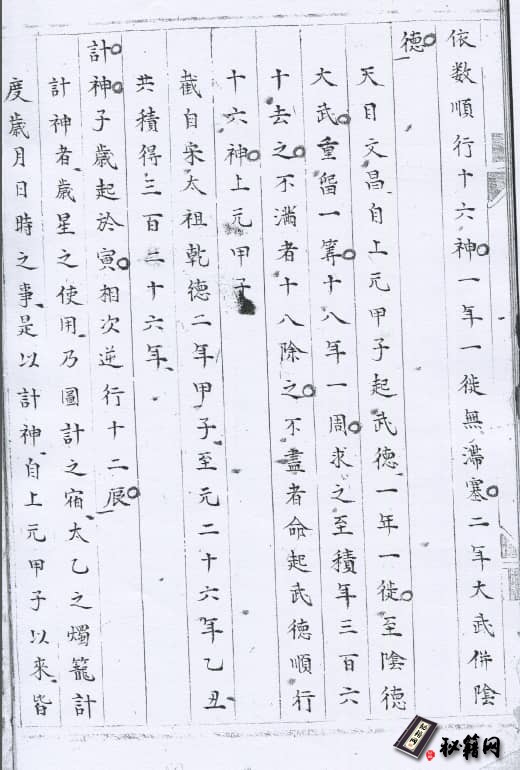 依数順行十六神一年一徙無滯塞二年大武併陰
德
天目文昌自上元甲子起武德一年一徙至陰德
大武重留一筭十八年一周求之至積年三百六
十去之不滿者十八除之不盡者命起武德順行
十六神上元甲子
截自宋太祖乾德二年甲子至元二十六年乙丑
共積得三百二十六年
計神子歲起於寅相次逆行十二辰
計神者歲星之使用乃圖計之宿太乙之燭籠計
度歲月日時之事是以計神自上元甲子以來皆
秘籍网